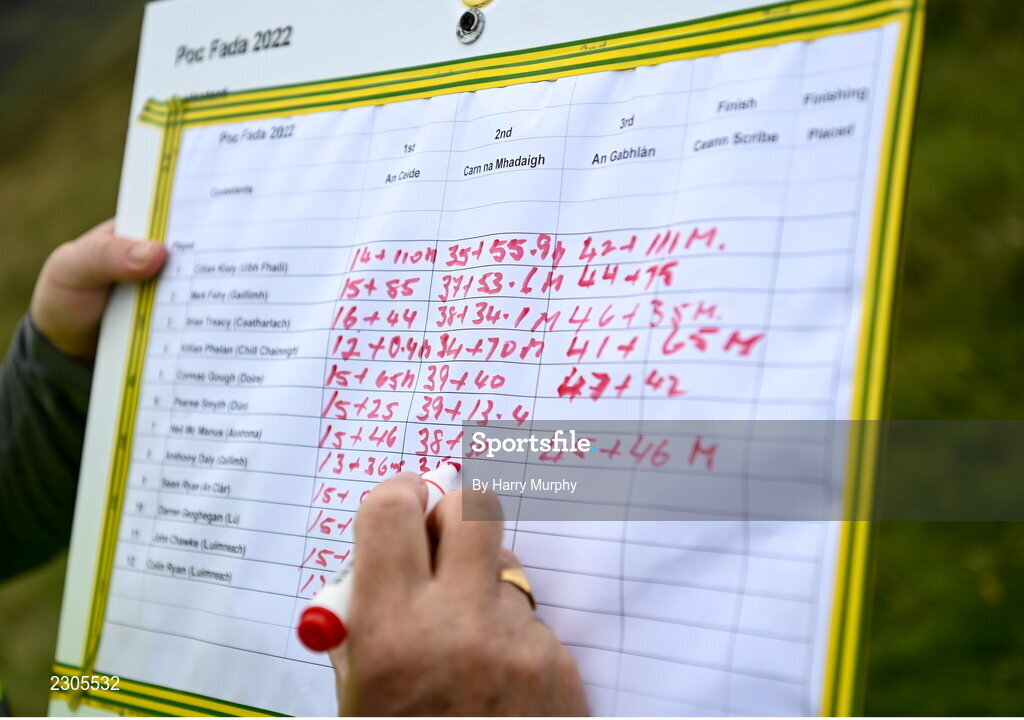 Poc Fada 2022
Poc Fada 2022 1st 2nd 3rd Finish Finishing
Contestants An Ceide Carn na Mhadaigh An Gabhlán Ceann Scribe Placed
Played
1 Cillian Kiely (Uibh Fhailí) 14 + 110m 35 + 55.9m 42 + 111 M.
2 Mark Fahy (Gaillimh) 15 + 85 37 + 53.6 M 44 + 78
3 Brian Treacy (Ceatharlach) 16 + 44 38 + 34.1 M 46 + 35 M.
4 Killian Phelan (Chill Chainnigh) 12 + 0.4m 34 + 70 M 41 + 65 M
5 Cormac Gough (Doire) 15 + 65m 39 + 40 47 + 42
6 Pearse Smyth (Dún) 15 + 25 39 + 13.4
7 Neil Mc Manus (Aontroma) 15 + 46 38 + 45 + 46 M
8 Anthony Daly (Gillimh) 13 + 36m
9 Sean Ryan (An Clár) 15 +
10 Darren Geoghegan (Lú) 15 +
11 John Chawke (Luimneach) 15 +
12 Colin Ryan (Luimneach)
Sportsfile
By Harry Murphy
2305532